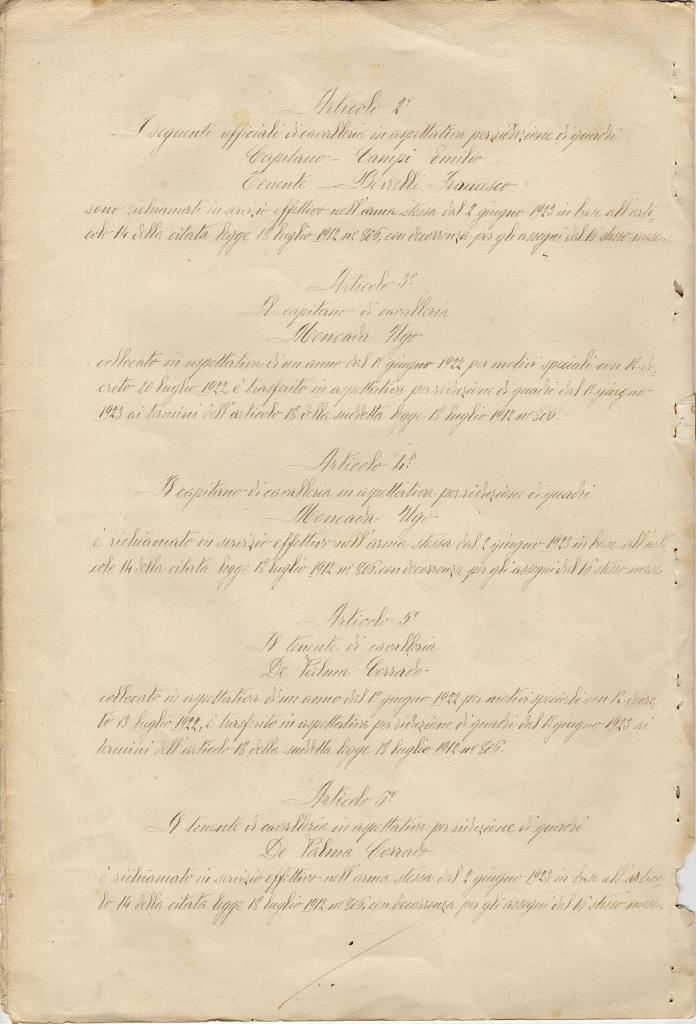 Articolo 2º
I seguenti ufficiali di cavalleria in aspettativa per riduzione di quadri
Capitano - Campi Emilio
Tenente - Borrelli Francesco
sono richiamati in servizio effettivo nell'arma stessa dal 2 giugno 1923 in base all'arti-
colo 14 della citata legge 18 luglio 1912 nº 806, con decorrenza per gli assegni dal 16 stesso mese.
Articolo 3º
Il capitano di cavalleria
Moncada Ugo
collocato in aspettativa di un anno dal 1º giugno 1922 per motivi speciali con R. de-
creto 20 luglio 1922 è trasferito in aspettativa per riduzione di quadri dal 1º giugno
1923 ai termini dell'articolo 13 della suddetta legge 18 luglio 1912 nº 806
Articolo 4º
Il capitano di cavalleria in aspettativa per riduzione di quadri
Moncada Ugo
è richiamato in servizio effettivo nell'arma stessa dal 2 giugno 1923 in base all'arti
colo 14 della citata legge 18 luglio 1912 nº 806, con decorrenza per gli assegni dal 16 stesso mese
Articolo 5º
Il tenente di cavalleria
De Palma Corrado
collocato in aspettativa di un anno dal 1º giugno 1922 per motivi speciali con R. decre-
to 13 luglio 1922, è trasferito in aspettativa per riduzione di quadri dal 1º giugno 1923 ai
termini dell'articolo 13 della suddetta legge 18 luglio 1912 nº 806.
Articolo 6º
Il tenente di cavalleria in aspettativa per riduzione di quadri
De Palma Corrado
è richiamato in servizio effettivo nell'arma stessa dal 2 giugno 1923 in base all'artico-
lo 14 della citata legge 18 luglio 1912 nº 806, con decorrenza per gli assegni dal 16 stesso mese.